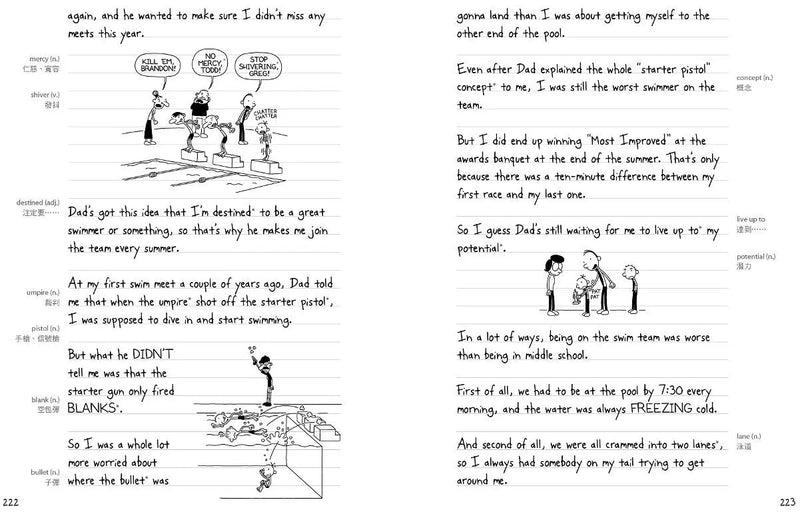 again, and he wanted to make sure I didn't miss any
meets this year.
mercy (n.)
仁慈、寬容
shiver (v.)
發抖
KILL 'EM,
BRANDON!
NO
MERCY,
TODD!
STOP
SHIVERING,
GREG!
CHATTER
CHATTER
destined (adj.)
注定要……
Dad's got this idea that I'm destined* to be a great
swimmer or something, so that's why he makes me join
the team every summer.
At my first swim meet a couple of years ago, Dad told
umpire (n.)
裁判
me that when the umpire* shot off the starter pistol*,
I was supposed to dive in and start swimming.
pistol (n.)
手槍、信號槍
But what he DIDN'T
tell me was that the
starter gun only fired
blank (n.)
空包彈
BLANKS*.
So I was a whole lot
more worried about
bullet (n.)
子彈
where the bullet* was
222
gonna land than I was about getting myself to the
other end of the pool.
Even after Dad explained the whole "starter pistol"
concept (n.)
概念
concept* to me, I was still the worst swimmer on the
team.
But I did end up winning "Most Improved" at the
awards banquet at the end of the summer. That's only
because there was a ten-minute difference between my
first race and my last one.
live up to
達到……
So I guess Dad's still waiting for me to live up to* my
potential*.
potential (n.)
潛力
PAT
PAT
In a lot of ways, being on the swim team was worse
than being in middle school.
First of all, we had to be at the pool by 7:30 every
morning, and the water was always FREEZING cold.
lane (n.)
泳道
And second of all, we were all crammed into two lanes*,
so I always had somebody on my tail trying to get
around me.
223